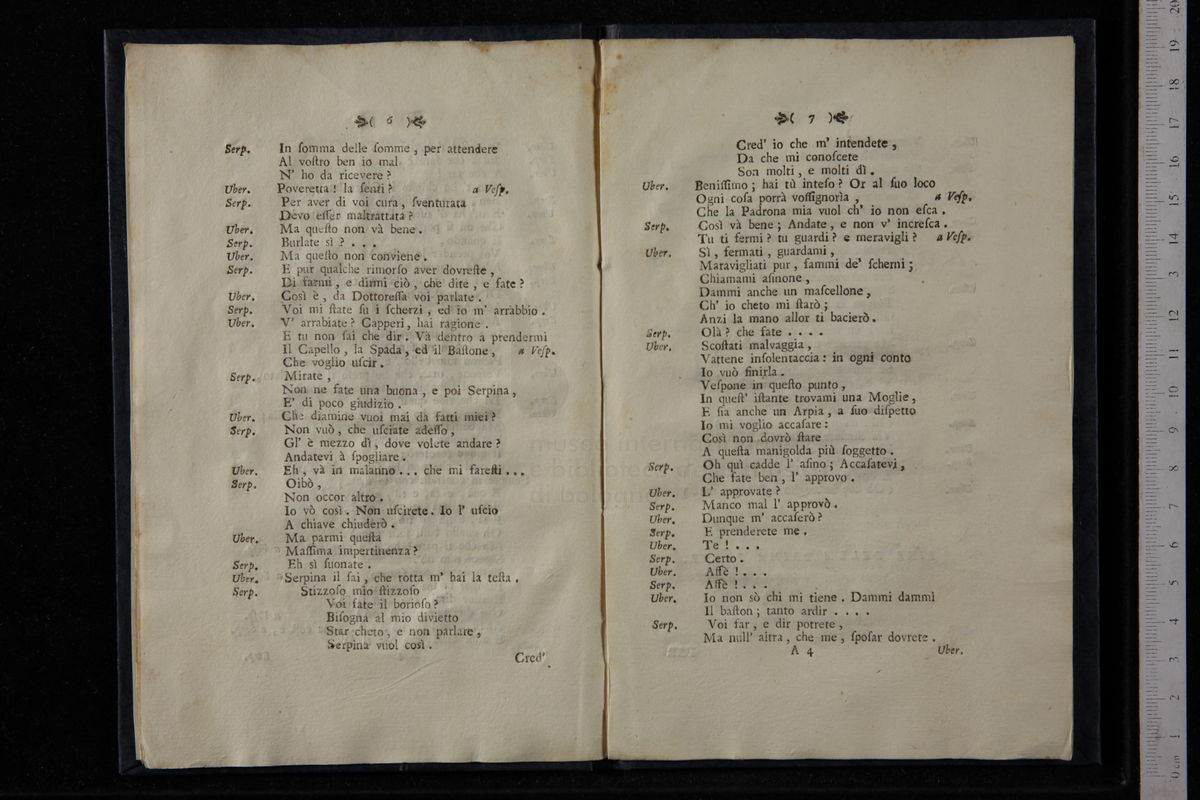 ( 6 )
Serp. In ſomma delle ſomme , per attendere
Al voſtro ben io mal
N' ho da ricevere ?
Uber. Poveretta ! la ſenti ? a Veſp.
Serp. Per aver di voi cura , ſventurata
Devo eſſer maltrattata ?
Uber. Ma queſto non và bene .
Serp. Burlate sì ? . . .
Uber. Ma queſto non conviene .
Serp. E pur qualche rimorſo aver dovreſte ,
Di farmi , e dirmi ciò , che dite , e fate ?
Uber. Così è , da Dottoreſſa voi parlate .
Serp. Voi mi ſtate ſu i ſcherzi , ed io m' arrabbio .
Uber. V' arrabiate ? Capperi , hai ragione .
E tu non ſai che dir . Và dentro a prendermi
Il Capello , la Spada , ed il Baſtone , a Veſp.
Che voglio uſcir .
Serp. Mirate ,
Non ne fate una buona , e poi Serpina ,
E' di poco giudizio .
Uber. Che diamine vuoi mai da fatti miei ?
Serp. Non vuò , che uſciate adeſſo ,
Gl' è mezzo dì , dove volete andare ?
Andatevi à ſpogliare .
Uber. Eh , và in malanno . . . che mi fareſti . . .
Serp. Oibò ,
Non occor altro .
Io vò così . Non uſcirete . Io l' uſcio
A chiave chiuderò .
Uber. Ma parmi queſta
Maſſima impertinenza ?
Serp. Eh sì ſuonate .
Uber. Serpina il ſai , che rotta m' hai la teſta .
Serp. Stizzoſo mio ſtizzoſo
Voi fate il borioſo ?
Biſogna al mio divietto
Star cheto , e non parlare ,
Serpina vuol così .
Cred'
( 7 )
Cred' io che m' intendete ,
Da che mi conoſcete
Son molti , e molti dì .
Uber. Beniſſimo ; hai tù inteſo ? Or al ſuo loco
Ogni coſa porrà voſſignorìa , a Veſp.
Che la Padrona mia vuol ch' io non eſca .
Serp. Così và bene ; Andate , e non v' increſca .
Tu ti fermi ? tu guardi ? e meravigli ? a Veſp.
Uber. Sì , fermati , guardami ,
Maravigliati pur , fammi de' ſcherni ;
Chiamami aſinone ,
Dammi anche un maſcellone ,
Ch' io cheto mi ſtarò ;
Anzi la mano allor ti bacierò .
Serp. Olà ? che fate . . . .
Uber. Scoſtati malvaggia ,
Vattene inſolentaccia : in ogni conto
Io vuò finirla .
Veſpone in queſto punto ,
In queſt' iſtante trovami una Moglie ,
E ſia anche un Arpia , a ſuo diſpetto
Io mi voglio accaſare :
Così non dovrò ſtare
A queſta manigolda più ſoggetto .
Serp. Oh quì cadde l' aſino ; Accaſatevi ,
Che fate ben , l' approvo .
Uber. L' approvate ?
Serp. Manco mal l' approvò .
Uber. Dunque m' accaſerò ?
Serp. E prenderete me .
Uber. Te ! . . .
Serp. Certo .
Uber. Affè ! . . .
Serp. Affè ! . . .
Uber. Io non sò chi mi tiene . Dammi dammi
Il baſton ; tanto ardir . . . .
Serp. Voi far , e dir potrete ,
Ma null' altra , che me , ſpoſar dovrete .
A 4 Uber.